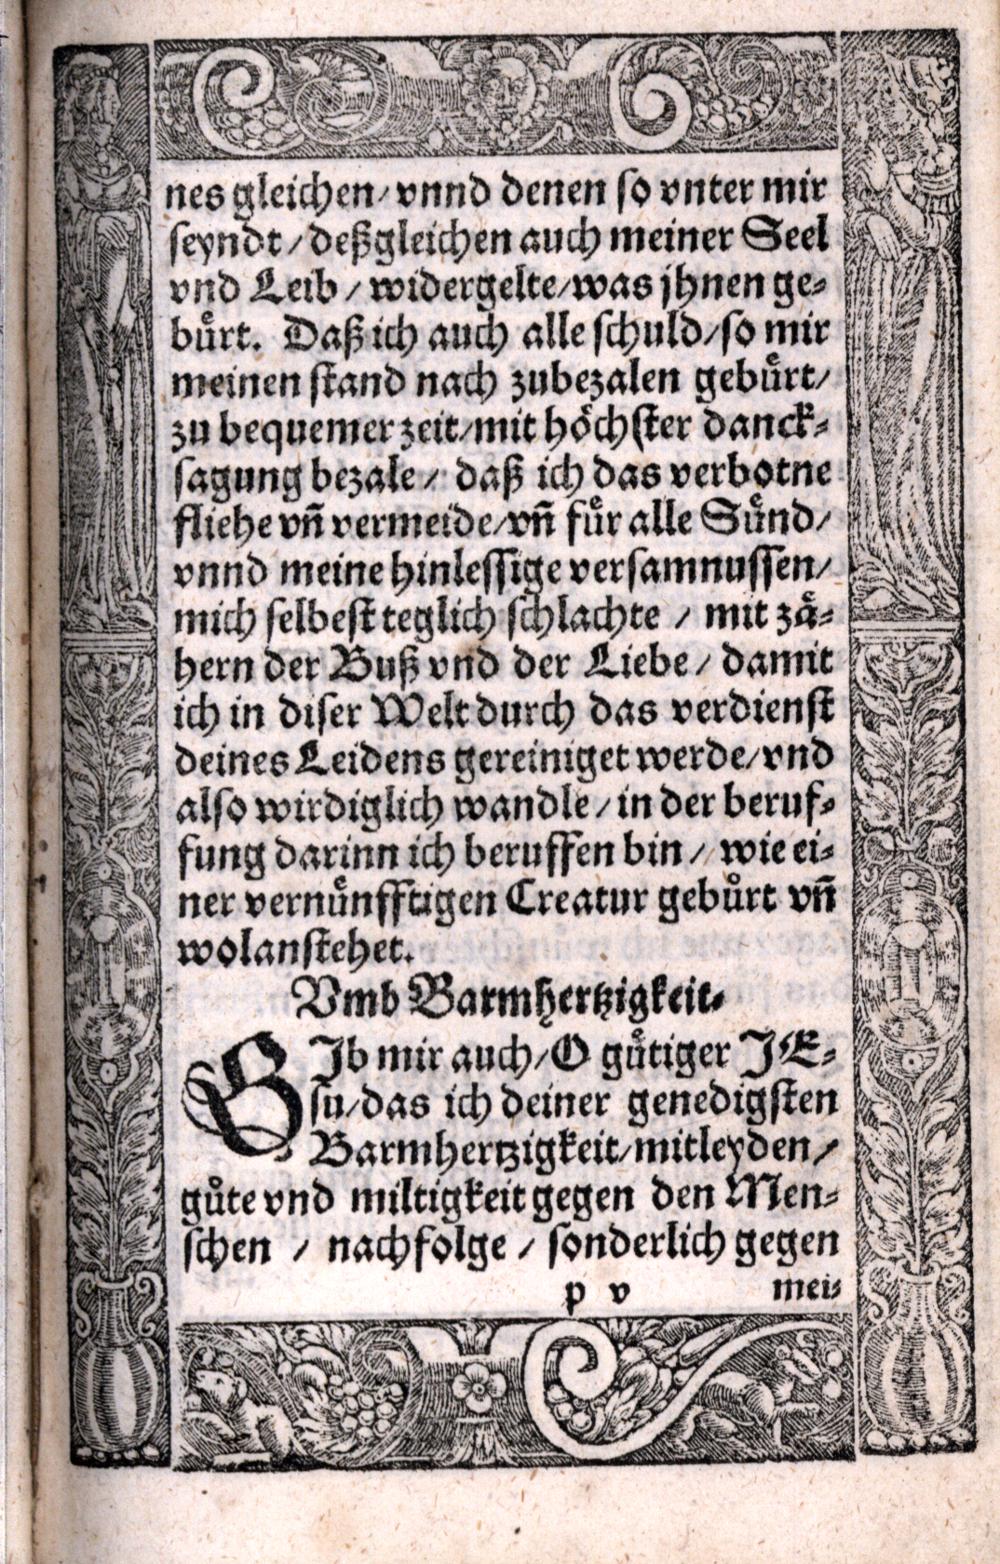 nes gleichen / vnnd denen so vnter mir
seyndt / deßgleichen auch meiner Seel
vnd Leib / widergelte / was jhnen ge-
buͤrt. Daß ich auch alle schuld / so mir
meinen stand nach zubezalen gebuͤrt /
zu bequemer zeit / mit hoͤchster danck-
sagung bezale / daß ich das verbotne
fliehe vñ vermeide / vñ fuͤr alle Suͤnd /
vnnd meine hinlessige versamnussen /
mich selbest teglich schlachte / mit zaͤ-
hern der Buß vnd der Liebe / damit
ich in diser Welt durch das verdienst
deines Leidens gereiniget werde / vnd
also wirdiglich wandle / in der beruf-
fung darinn ich beruffen bin / wie ei-
ner vernuͤnfftigen Creatur gebuͤrt vñ
wolanstehet.
Vmb Barmhertzigkeit.
GJb mir auch / O guͤtiger JE-
su / das ich deiner genedigsten
Barmhertzigkeit / mitleyden /
guͤte vnd miltigkeit gegen den Men-
schen / nachfolge / sonderlich gegen
p v mei-